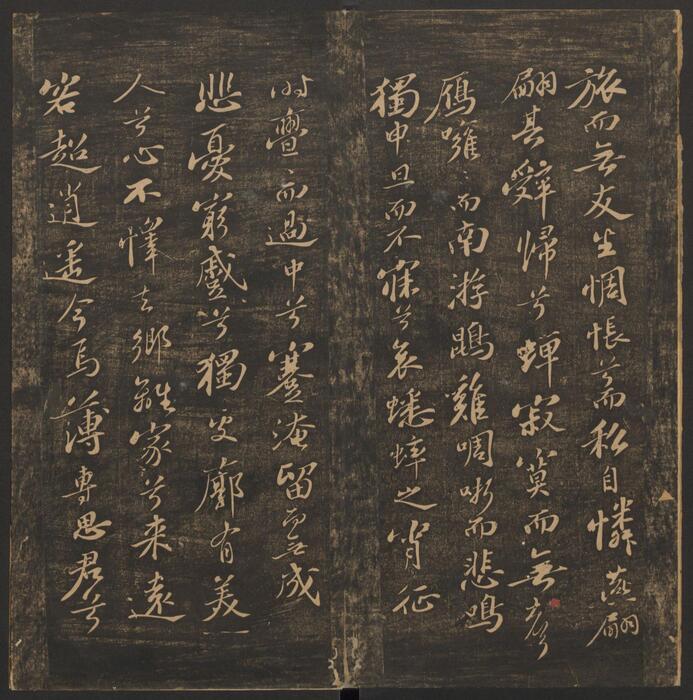 旅而无友生惆悵兮而私自憐燕翩
翩其辭歸兮蟬寂寞而無聲
鴈噰〻而南游鵾雞啁哳而悲鳴
獨申旦而不寐兮哀蟋蟀之宵征
時亹〻而過中兮蹇淹留而无成
悲憂窮蹙兮獨處廓有美一
人兮心不懌去鄉離家兮来遠
客超逍遙今焉薄專思君兮